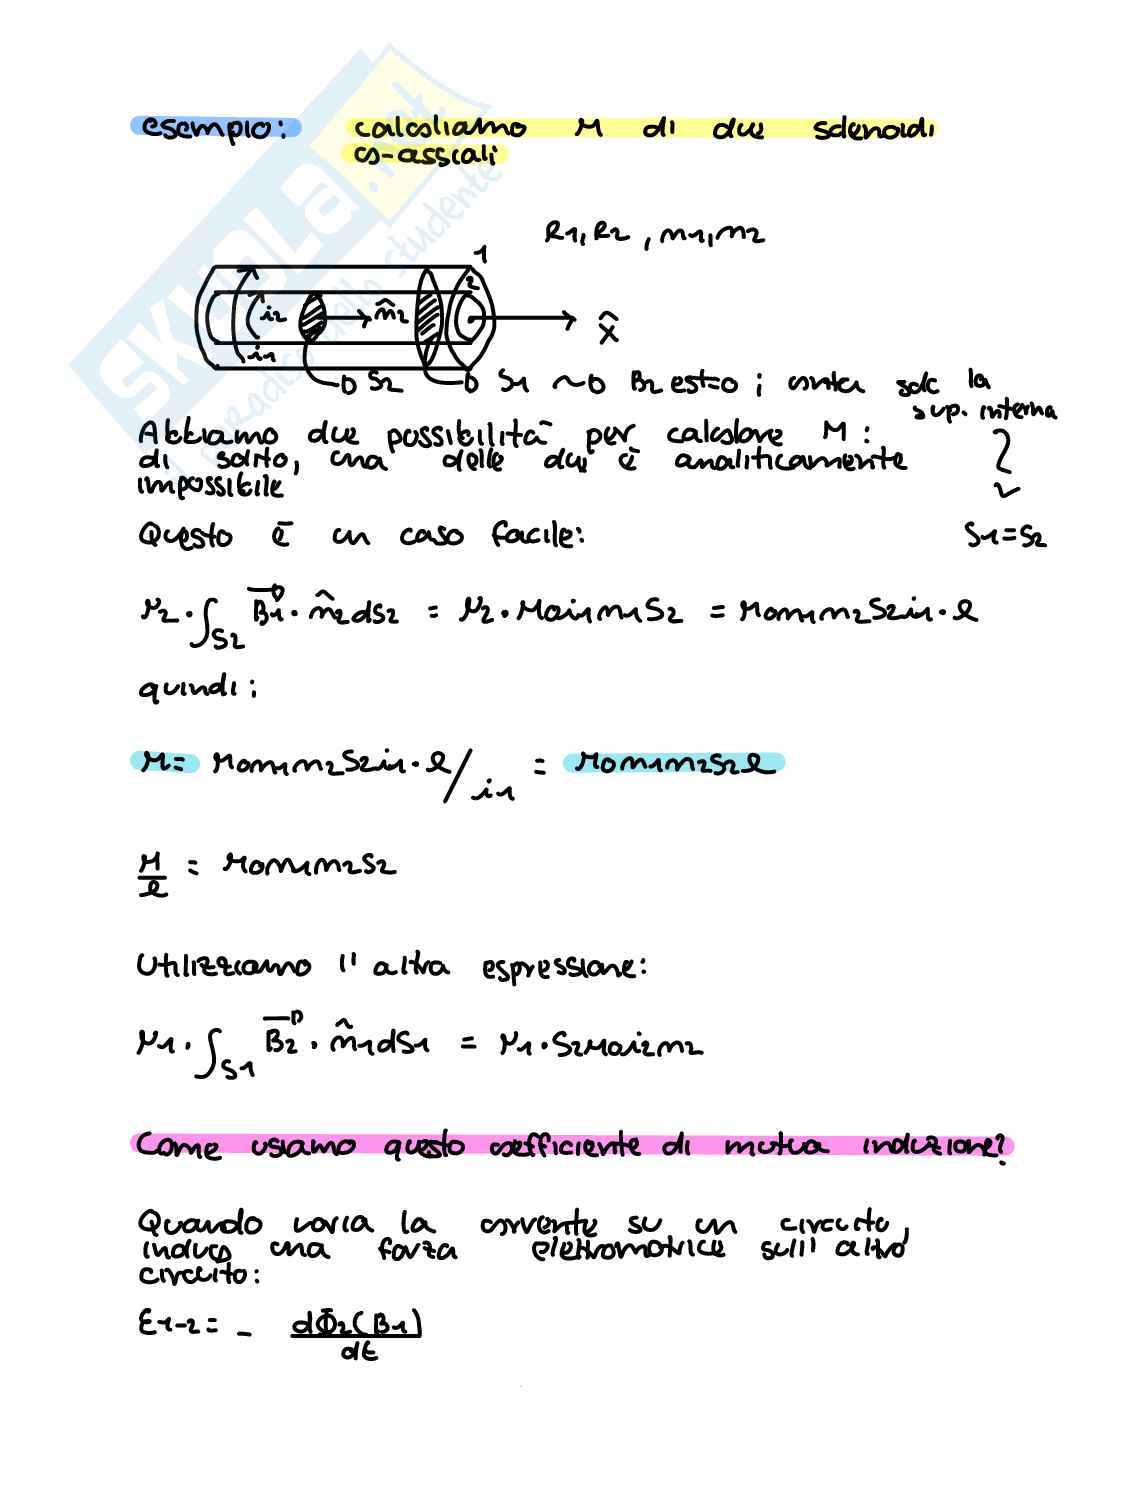 esempio: calcoliamo M di due solenoidi
co-assiali
R1, R2, n1, n2
1
2
i2
n̂2
x̂
i1
S2
S1 ~> B2 est=0 ; conta solo la
sup. interna
Abbiamo due possibilità per calcolare M:
di solito, una delle due è analiticamente
impossibile
Questo è un caso facile:
S1=S2
N2 · ∫S2 B1 · n̂2 dS2 = N2 · μ0 i1 n1 S2 = μ0 n1 n2 S2 i1 · l
quindi:
M= μ0 n1 n2 S2 i1 · l / i1 = μ0 n1 n2 S2 l
M/l = μ0 n1 n2 S2
Utilizziamo l'altra espressione:
N1 · ∫S1 B2 · n̂1 dS1 = N1 · S2 μ0 i2 n2
Come usiamo questo coefficiente di mutua induzione?
Quando varia la corrente su un circuito,
induco una forza elettromotrice sull'altro
circuito:
E1-2 = - dΦ2(B1)/dt
SKUOLA.net